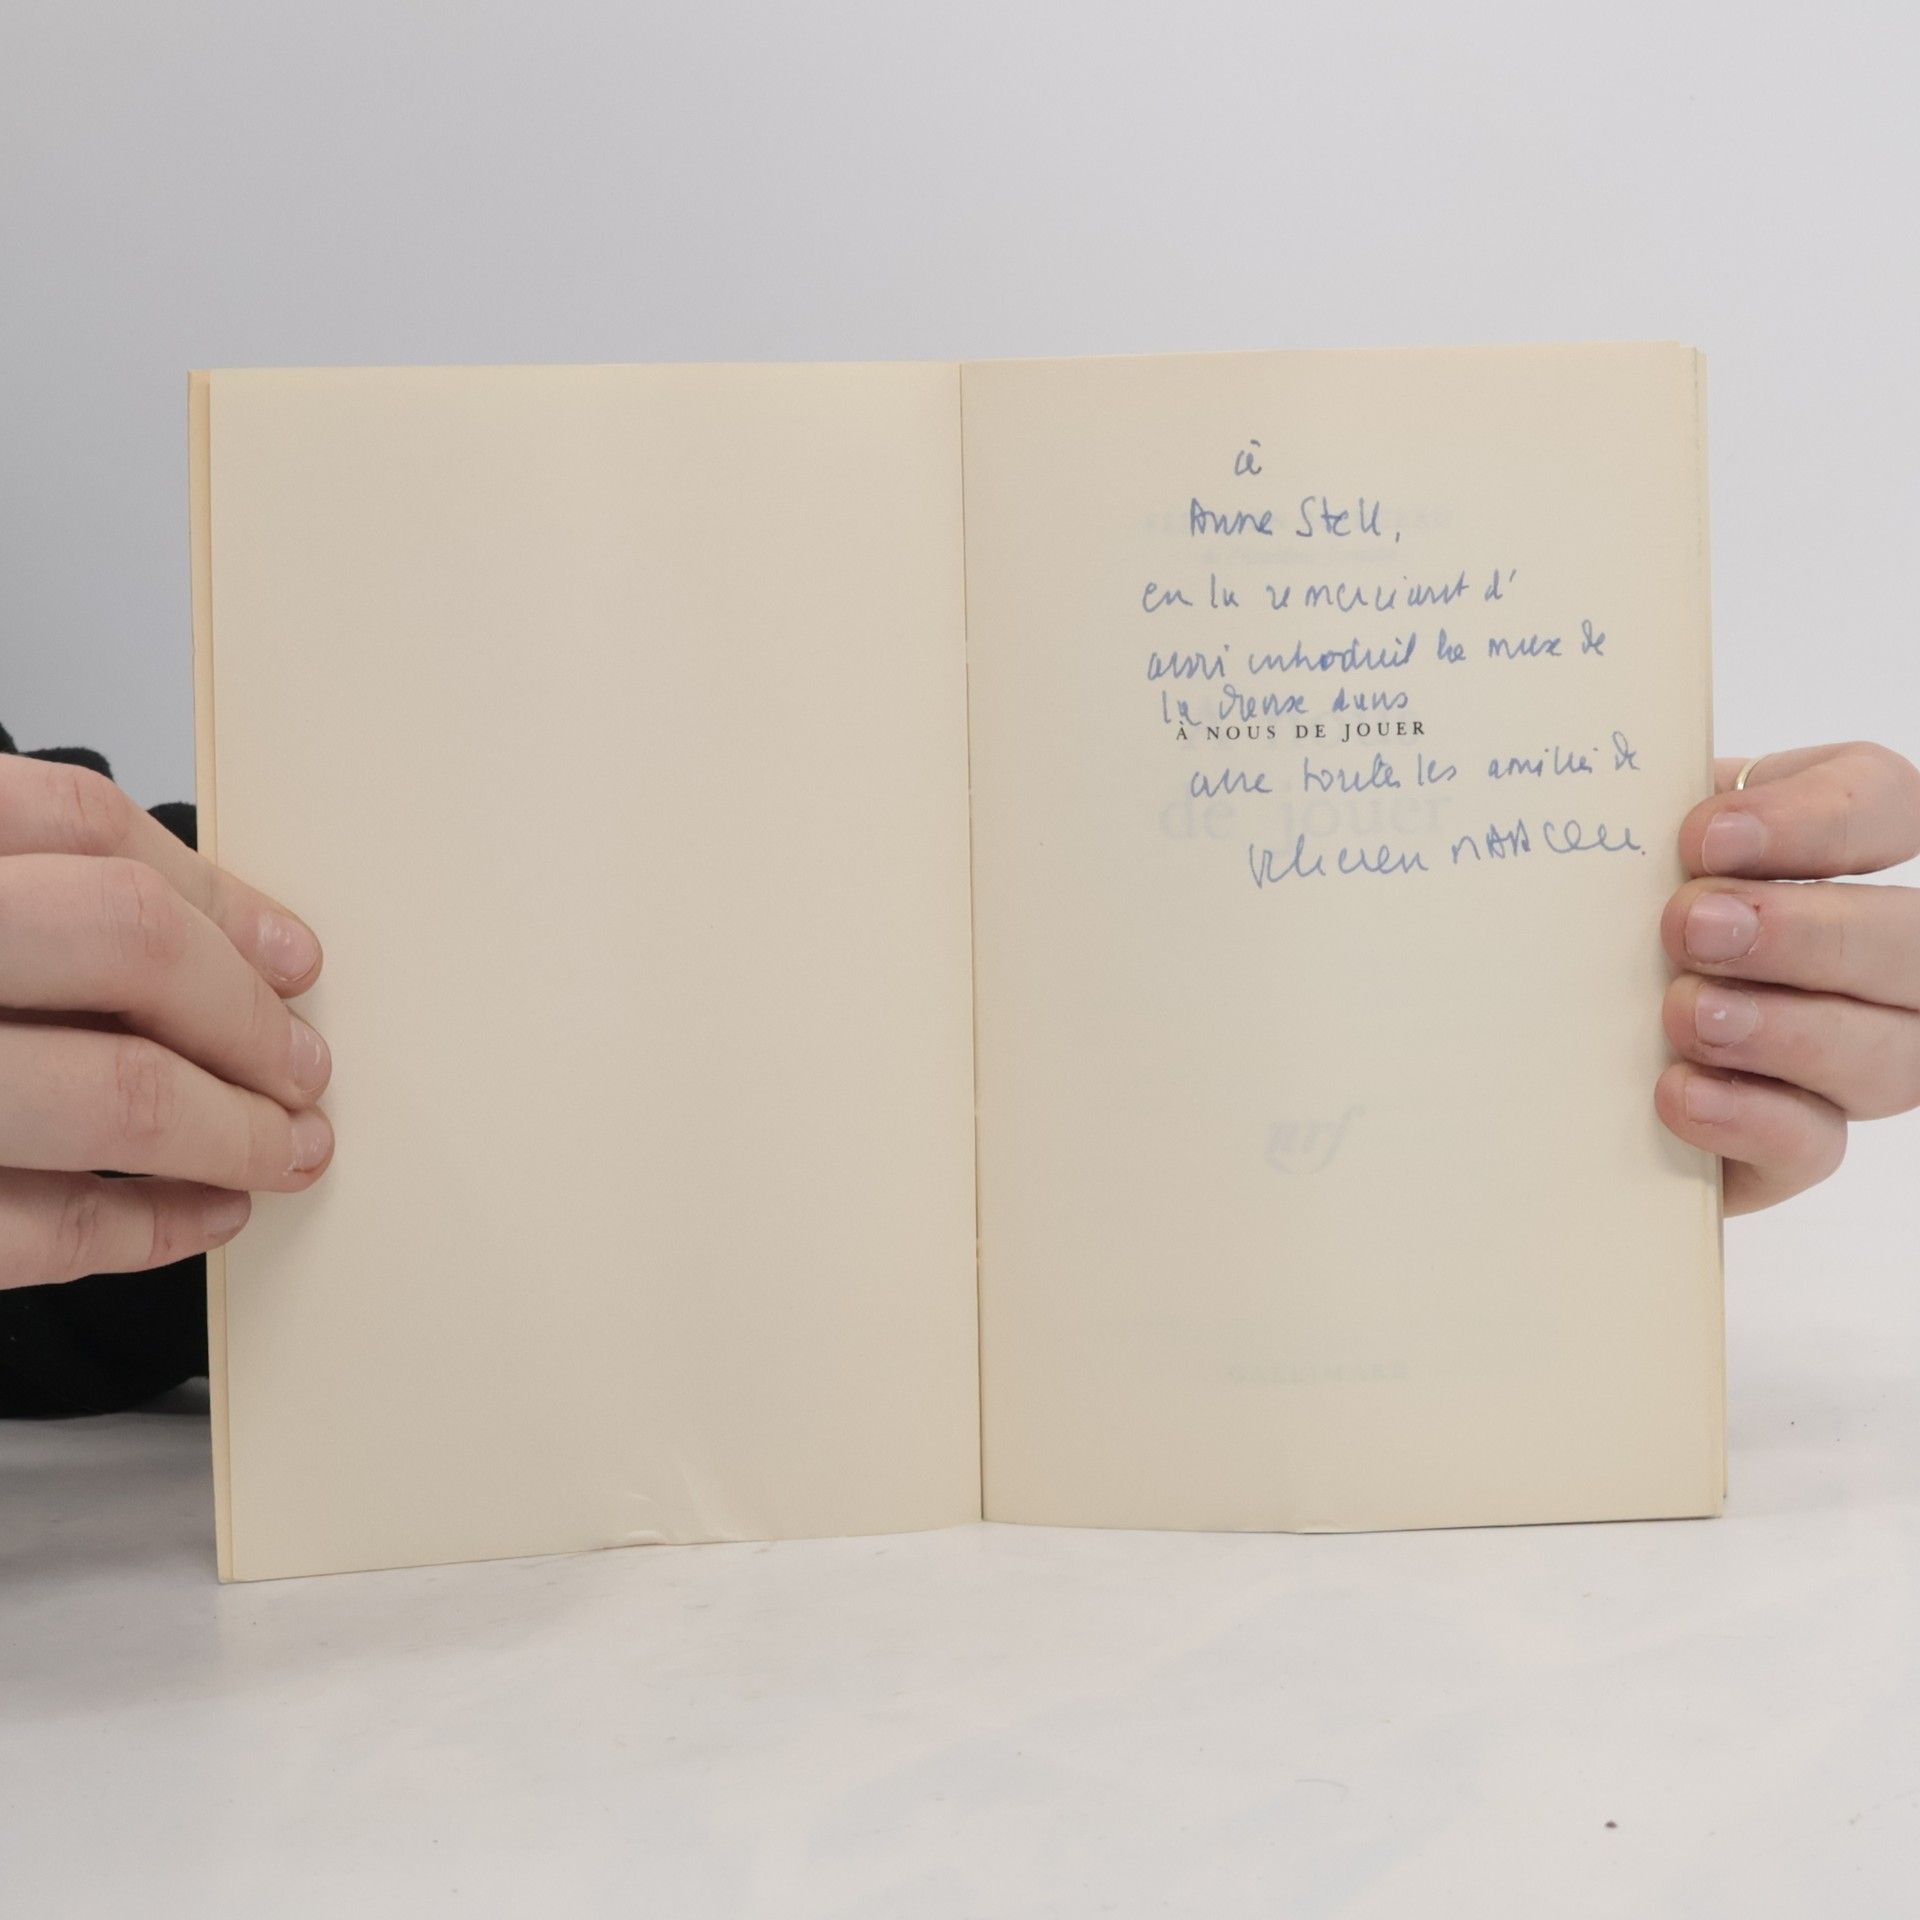 à
Anne Stell,
en la remerciant d'
avoir introduit la muse de
la danse dans
À NOUS DE JOUER
avec toutes les amitiés de
Félicien MARCEAU.
de jouer
nrf
GALLIMARD